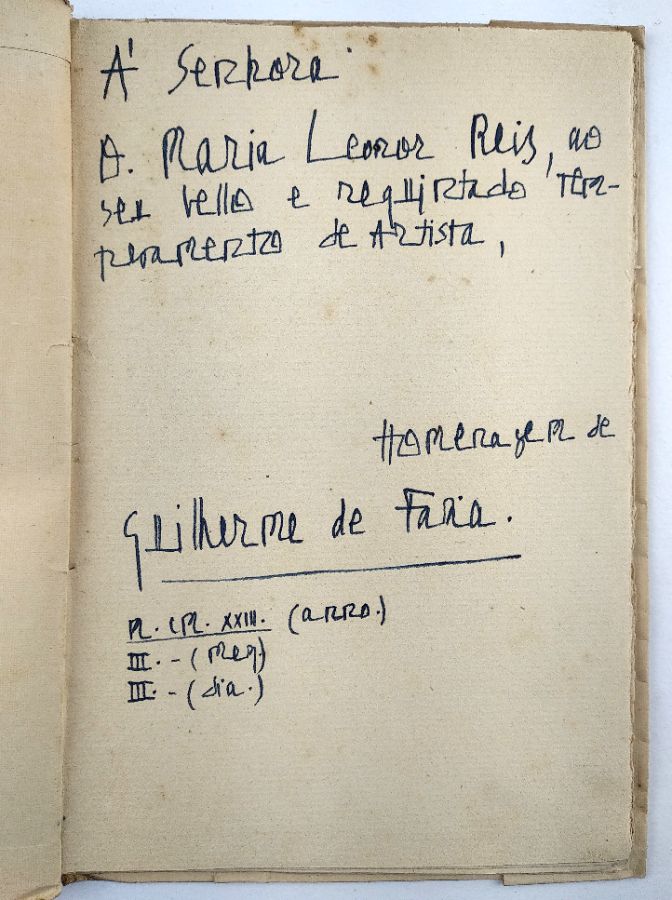 Á Senhora
D. Maria Leonor Reis, ao
seu bello e requintado tem-
peramento de Artista,
Homenagem de
Guilherme de Faria.
M. CM. XXIII. (anno.)
III. - (mez)
III. - (dia.)